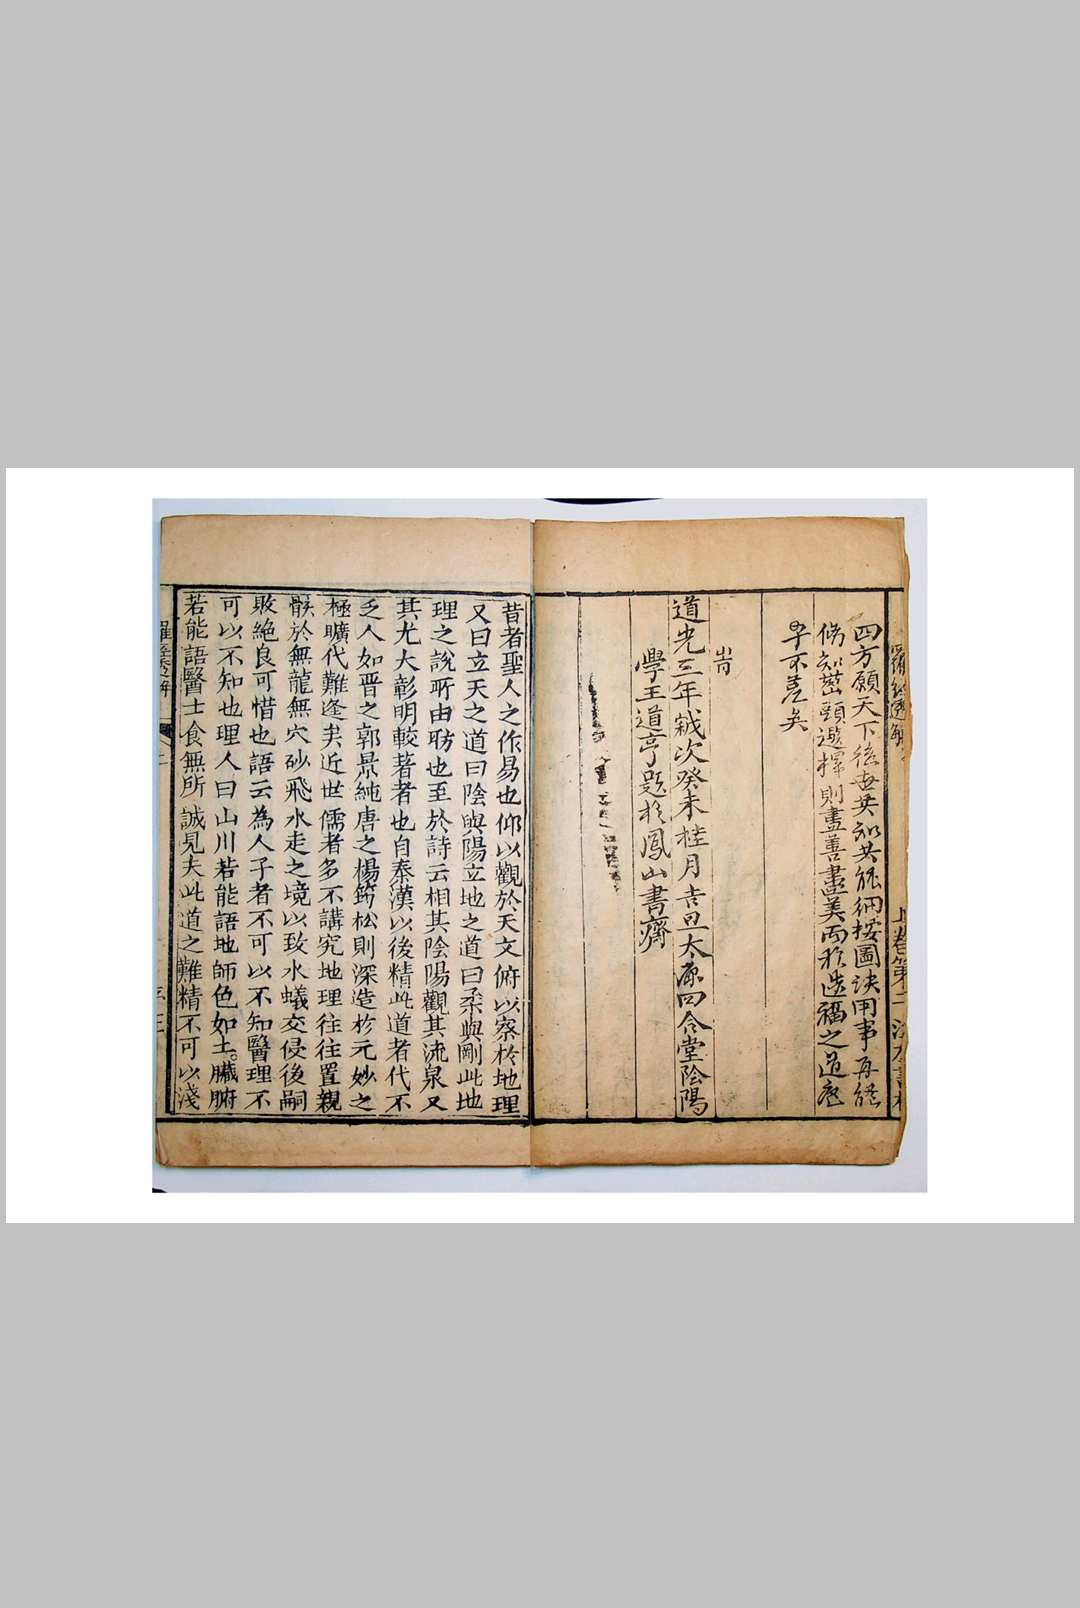 四方願天下後世英
按圖訣用事再能
選擇則盡善盡美而於造福之道庶
乎不差矣
峕
道光三年歲次癸未桂月吉旦太原四合堂陰陽
學王道亨題於鳳山書齋
昔者聖人之作易也仰以觀於天文俯以察於地理
又曰立天之道曰陰與陽立地之道曰柔與剛此地
理之說所由昉也至於詩云相其陰陽觀其流泉又
其尤大彰明較著者也自秦漢以後精此道者代不
乏人如晋之郭景純唐之楊筠松則深造於元妙之
極曠代難逢矣近世儒者多不講究地理往往置親
骸於無龍無穴砂飛水走之境以致水蟻交侵後嗣
敗絕良可惜也語云為人子者不可以不知醫理不
可以不知也理人曰山川若能語地師色如土。臟腑
若能語醫士食無所誠見夫此道之難精不可以淺